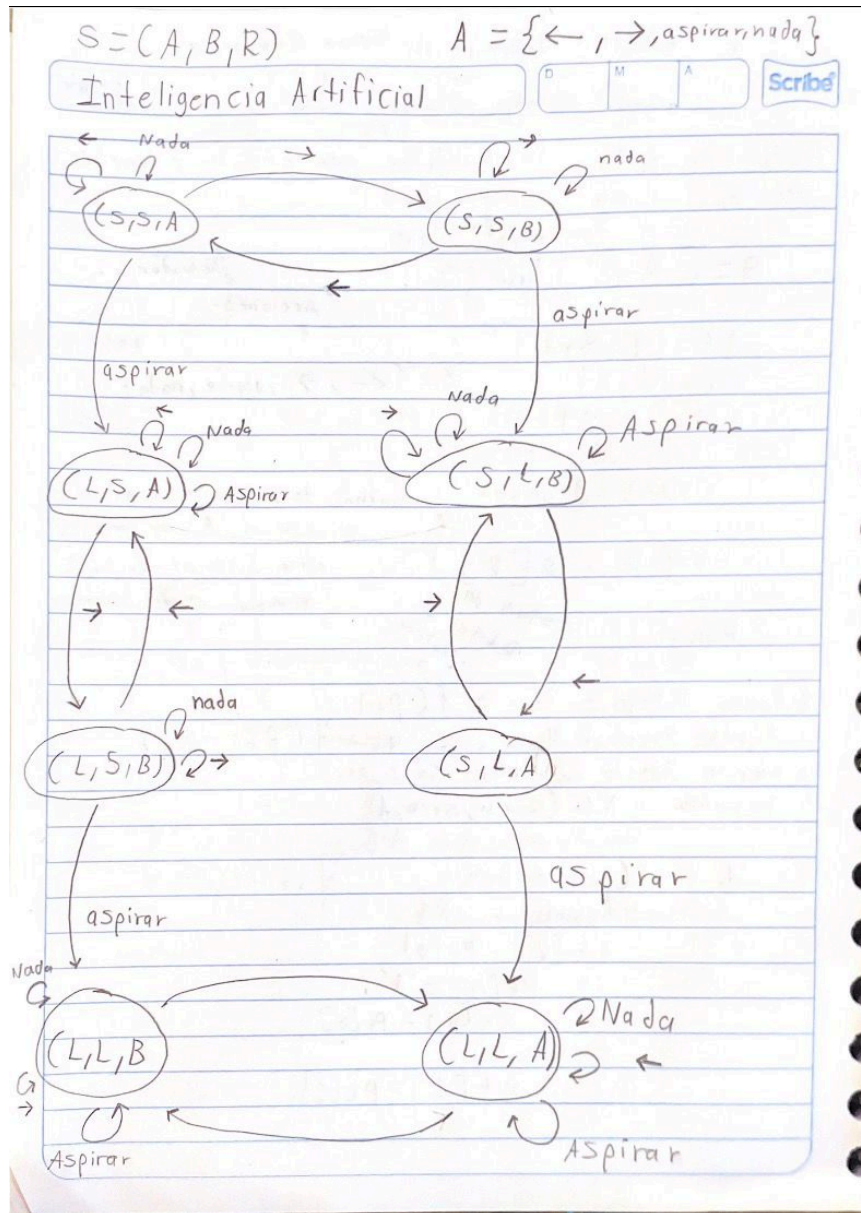 S = (A, B, R) A = {←, →, aspirar, nada}
Inteligencia Artificial D M A Scribe®
← Nada → → nada
(S,S,A (S,S,B)
←
aspirar
aspirar
← Nada → Nada Aspirar
(L,S,A) Aspirar (S,L,B)
→ ← →
←
nada
(L,S,B) → (S,L,A
aspirar
aspirar
Nada
Nada
(L,L,B (L,L,A) ←
→
Aspirar Aspirar